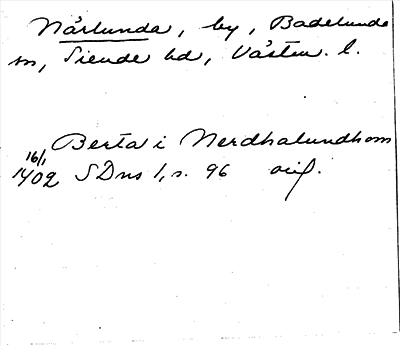 Närlunda, by, Badelunda
sn, Siende hd, Västm. l.
Berta i Nerdhalundhom
16/1
1402 SDns 1, s. 96 orig.